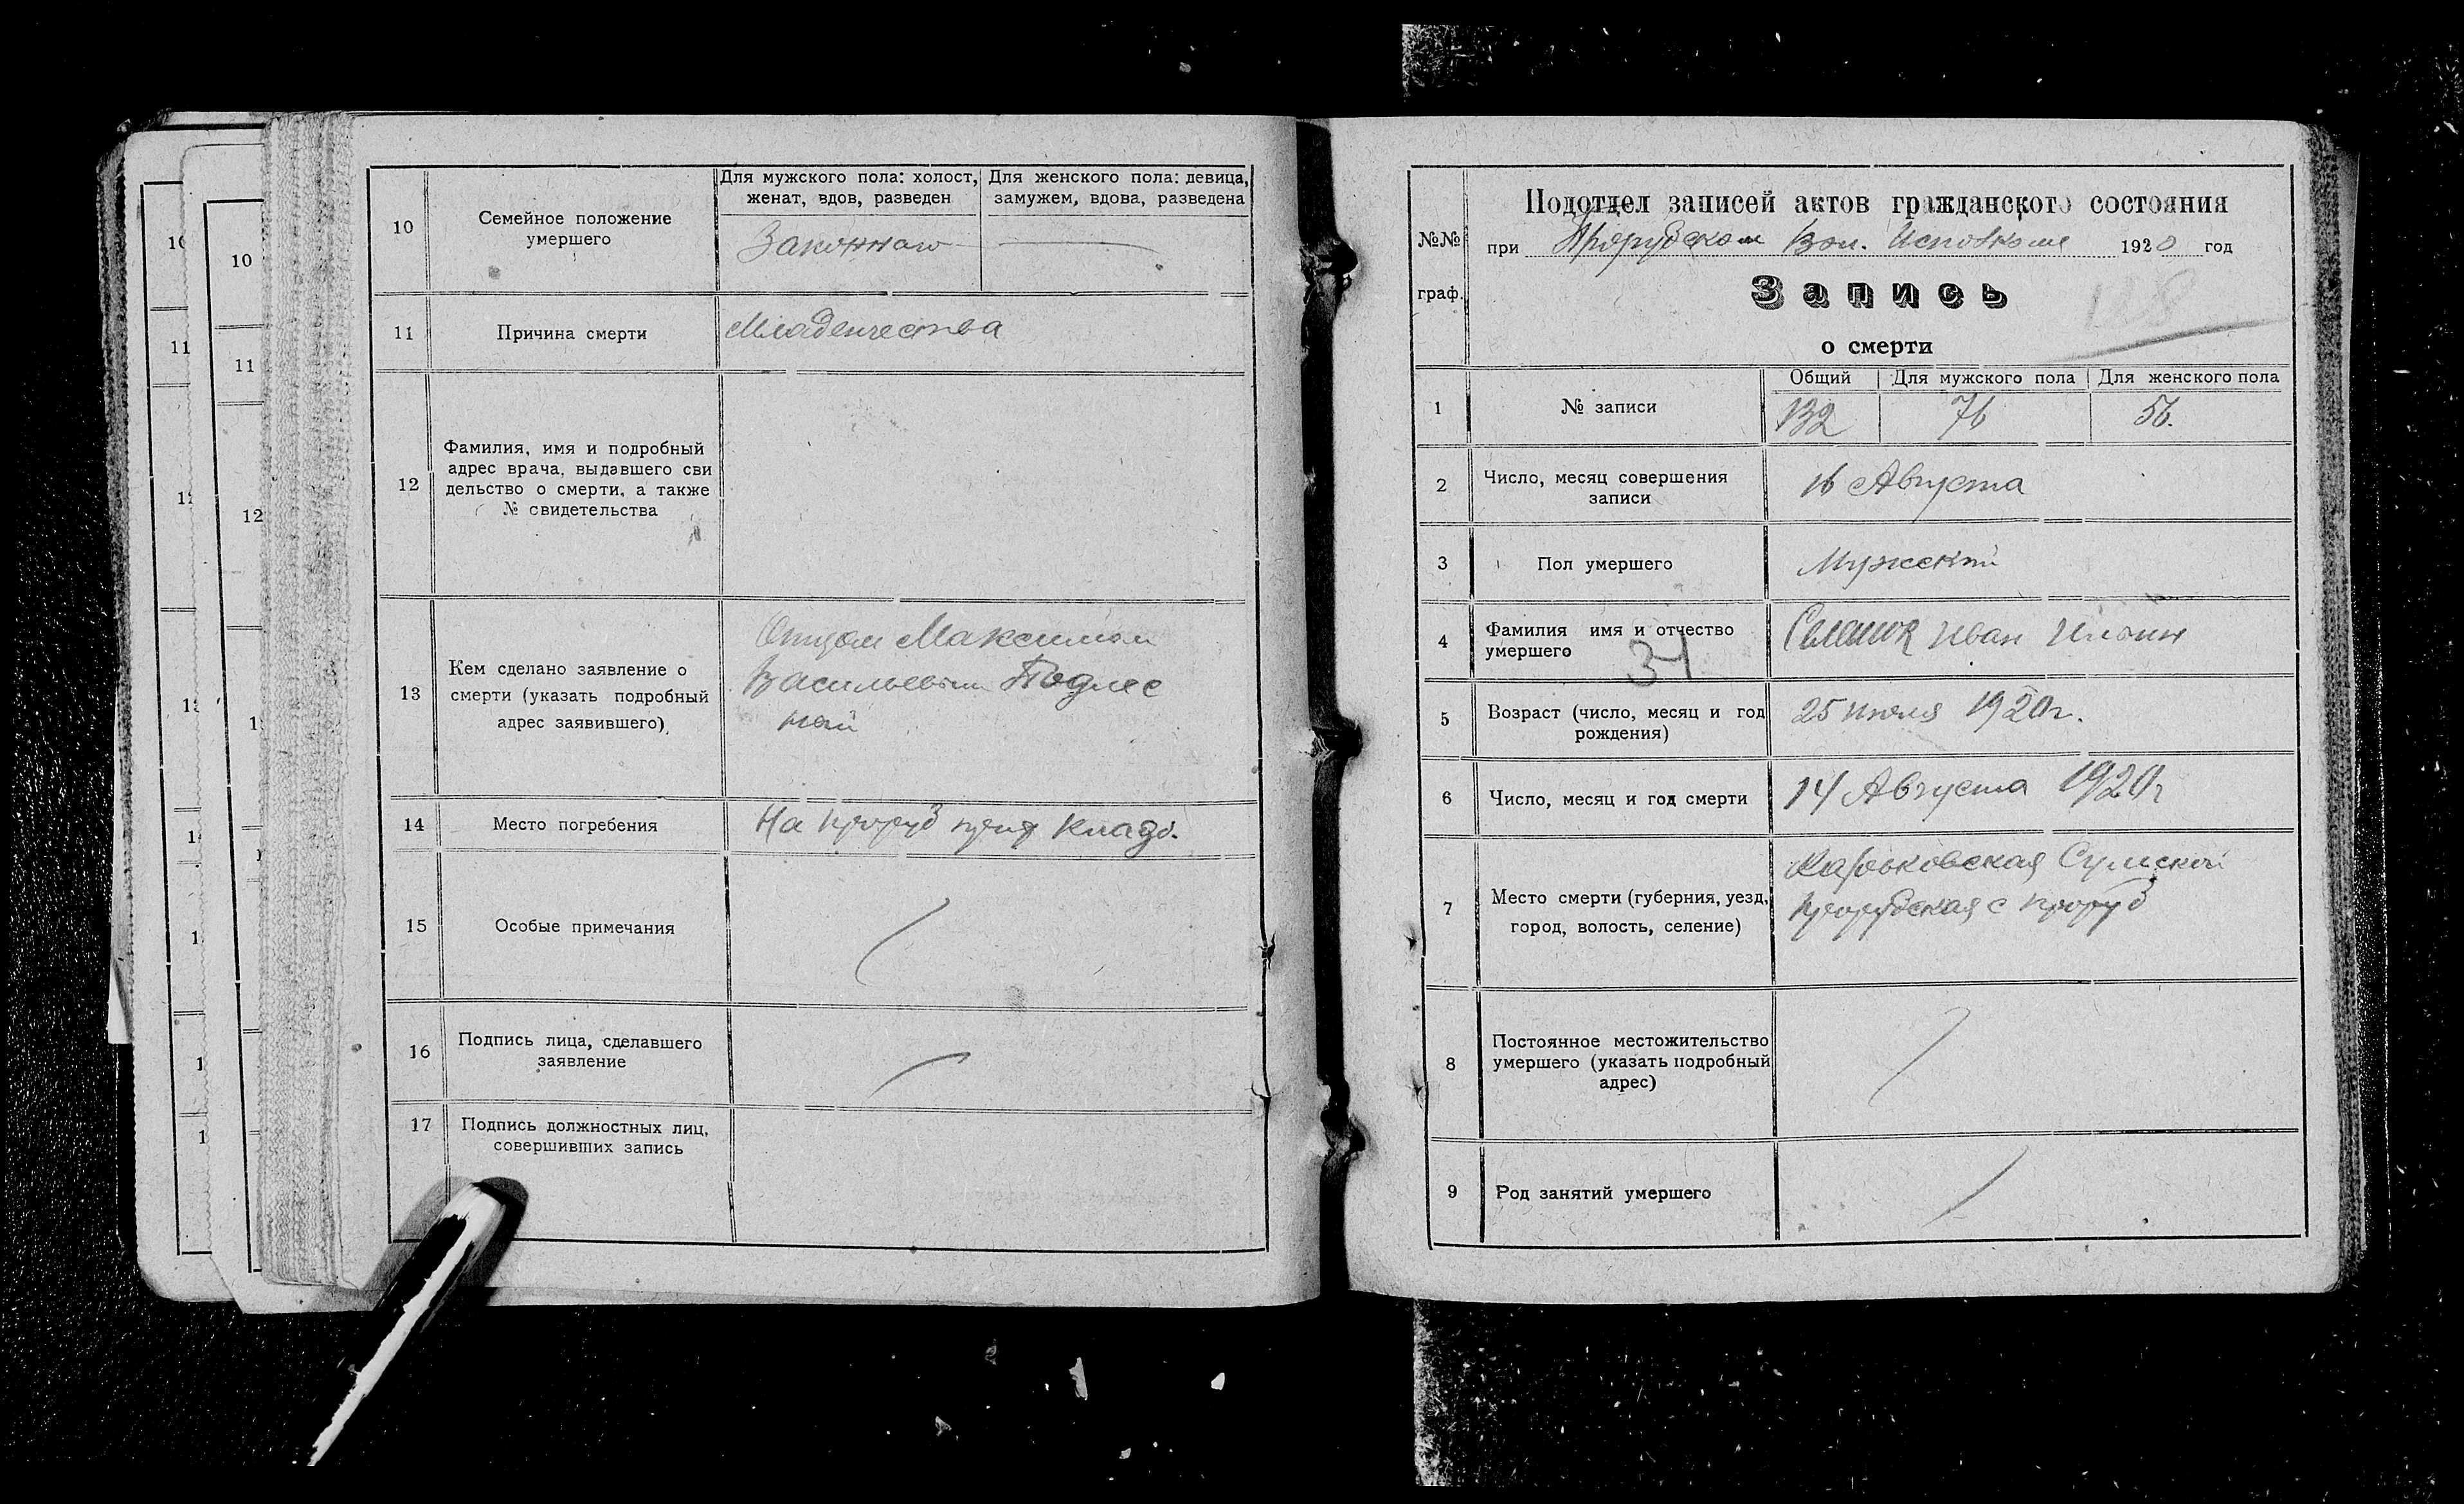 10
11
10
11
12
10
Семейное положение
умершего
Для мужского пола: холост,
женат, вдов, разведен
Для женского пола: девица,
замужем, вдова, разведена
Законного
11
Причина смерти
Младенчества
12
Фамилия, имя и подробный
адрес врача, выдавшего сви
дельство о смерти, а также
№ свидетельства
13
Кем сделано заявление о
смерти (указать подробный
адрес заявившего)
Отцом Максимом
Васильевым Подлес
ной
14
Место погребения
На
15
Особые примечания
16
Подпись лица, сделавшего
заявление
17
Подпись должностных лиц,
совершивших запись
№№
граф.
Подотдел записей актов гражданского состояния
при Прорубском Вол. Исполкоме 1920 год
Запись
о смерти
1
№ записи
Общий
Для мужского пола
Для женского пола
132
76
56.
2
Число, месяц совершения
записи
16 Августа
3
Пол умершего
Мужской
4
Фамилия имя и отчество
умершего
34
Иван Ильин
5
Возраст (число, месяц и год
рождения)
25 июля 1920г.
6
Число, месяц и год смерти
14 Августа 1920г
7
Место смерти (губерния, уезд,
город, волость, селение)
Харьковская Сумской
Прорубская с Проруб
8
Постоянное местожительство
умершего (указать подробный
адрес)
9
Род занятий умершего